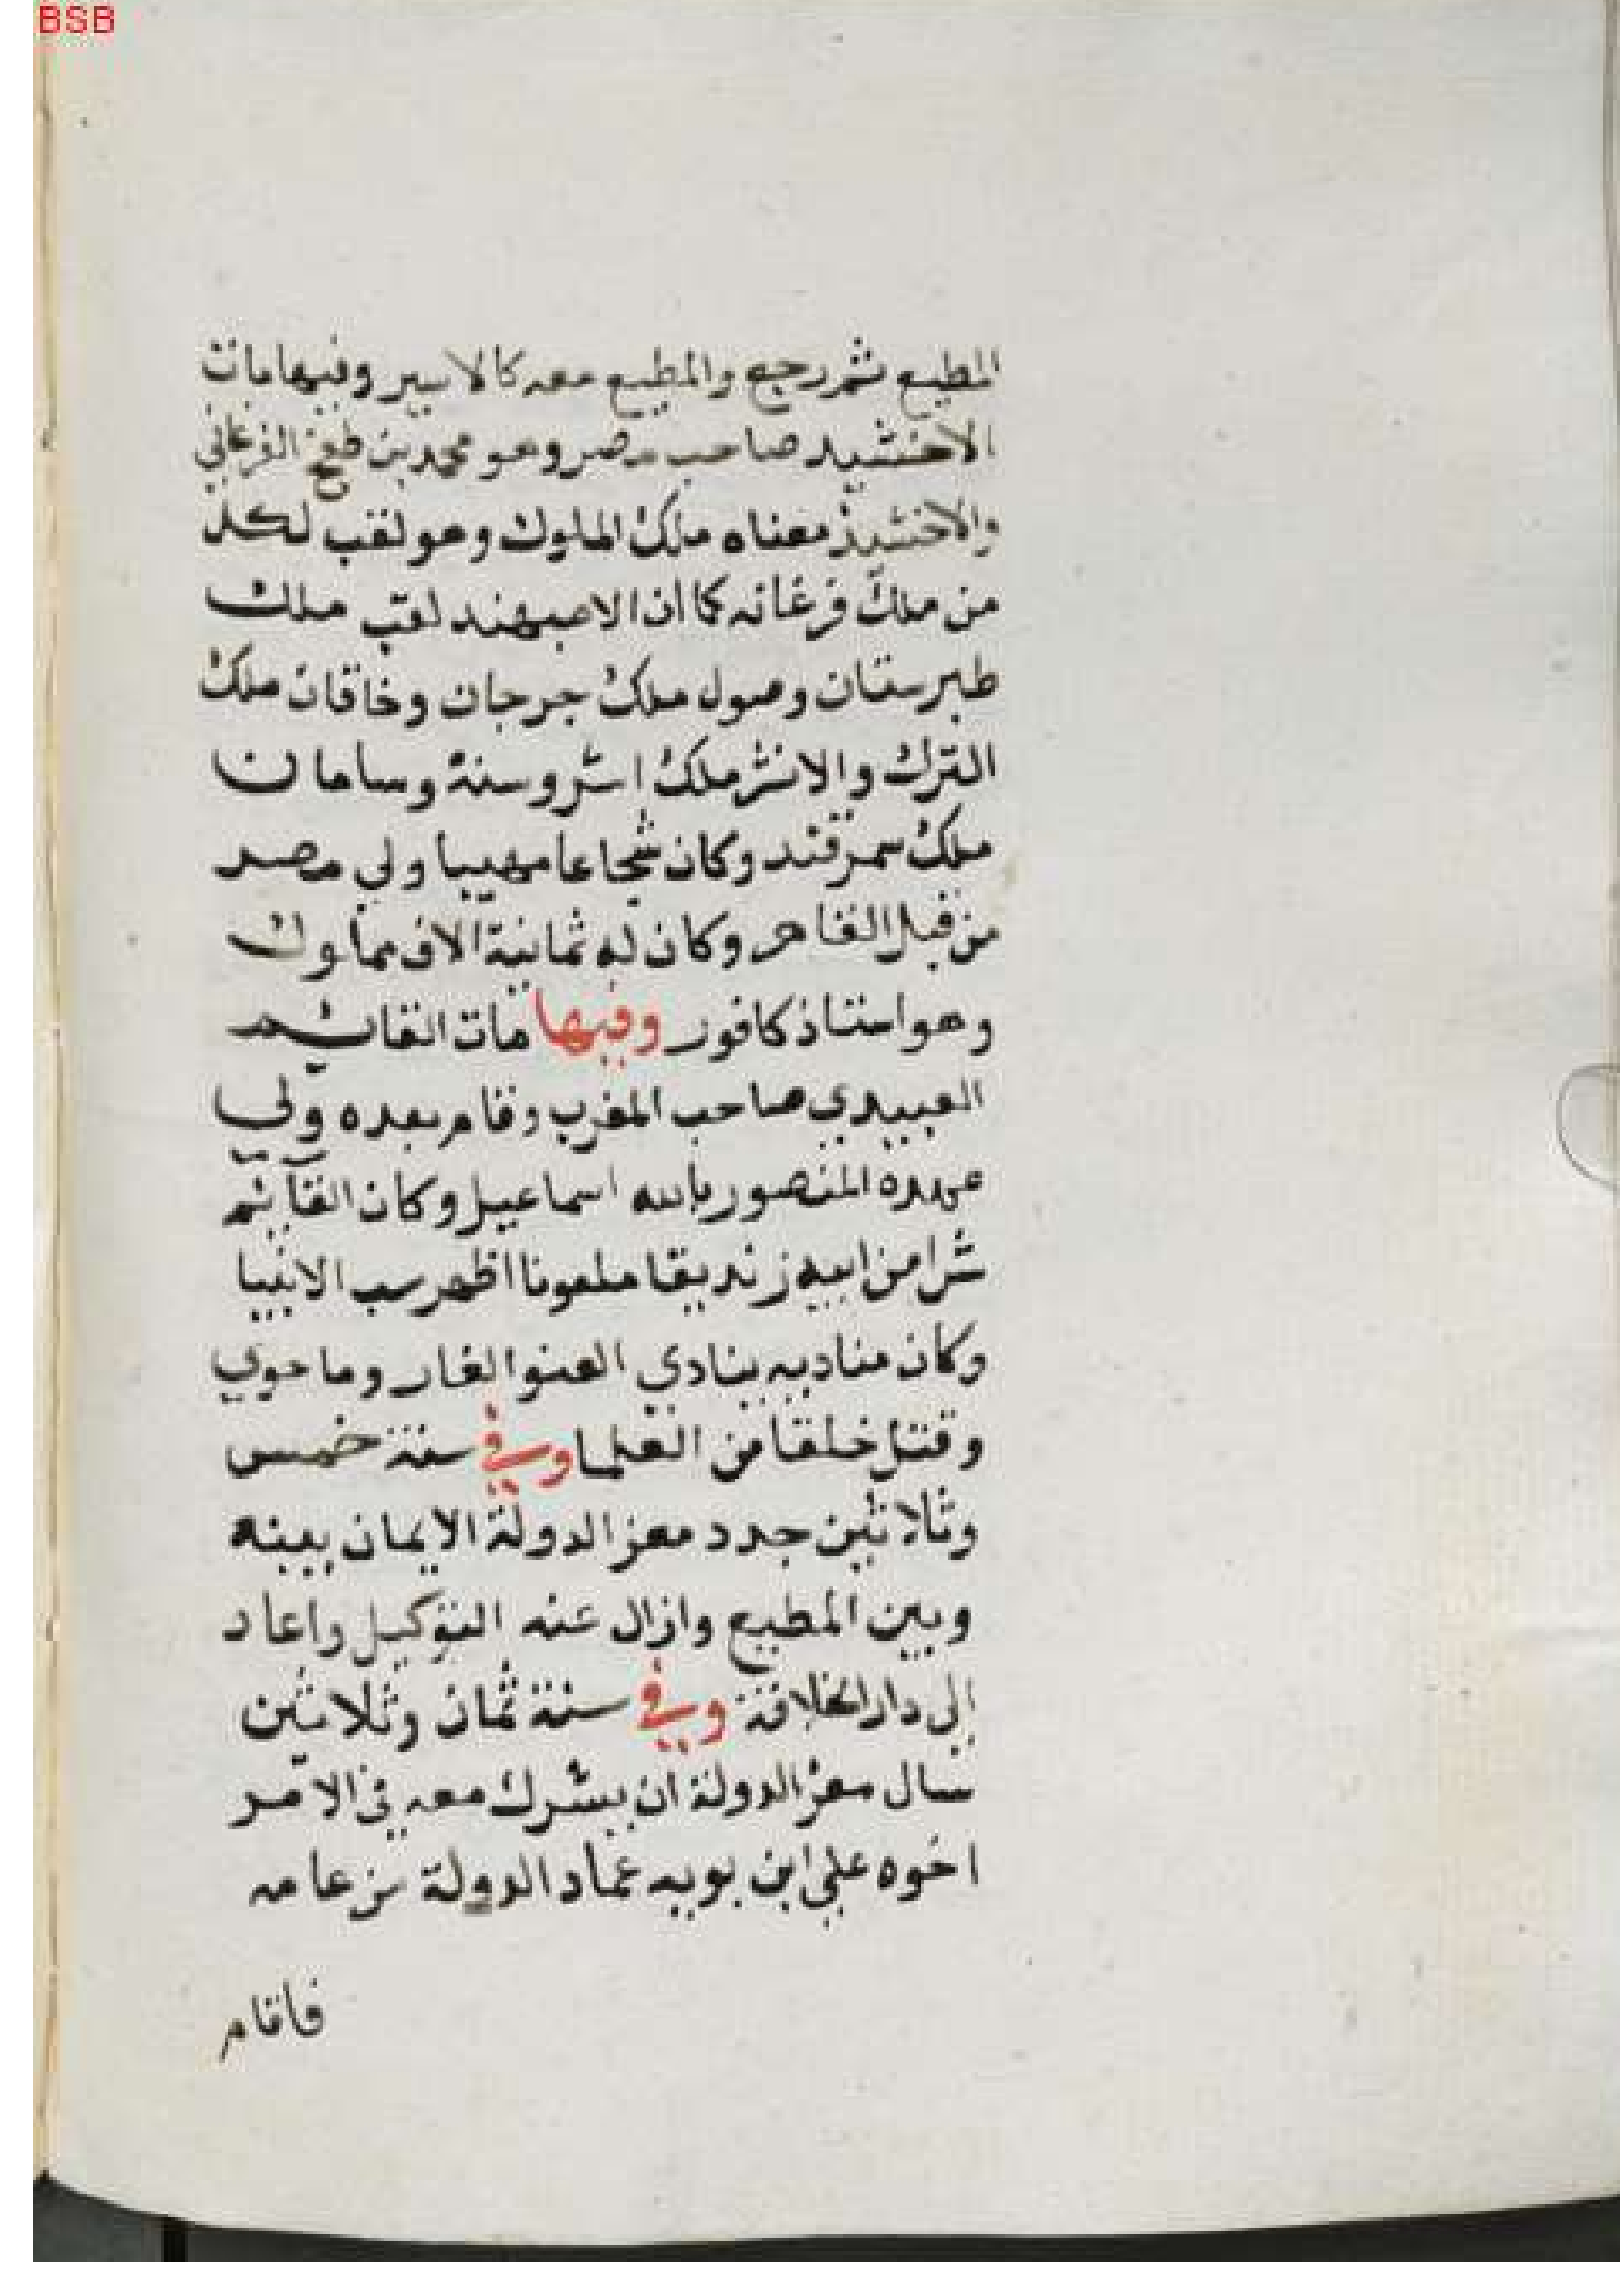 BSB
المطيع ثم رجع والمطيع معه كالاسير وفيها مات
الاخشيد صاحب مصر وهو محمد بن طغج الفرغاني
والاخشيذ معناه ملك الملوك وهو لقب لكل
من ملك فرغانه كما ان الاصبهند لقب ملك
طبرستان وصول ملك جرجان وخاقان ملك
الترك والانشز ملك اشروسنة وسامان
ملك سمرقند وكان شجاعا مهيبا ولي مصر
من قبل القاهر وكان له ثمانية الاف مملوك
وهو استاذ كافور وفيها مات القائم
العبيدي صاحب المغرب وقام بعده ولي
عهده المنصور بالله اسماعيل وكان القائم
شرا من ابيه زنديقا ملعونا اظهر سب الانبيا
وكان مناديه ينادي العنوا الغار وما حوي
وقتل خلقا من العلما وفي سنة خمس
وثلاثين جدد معز الدولة الايمان بينه
وبين المطيع وازال عنه التوكيل واعاد
الى دار الخلافة وفي سنة ثمان وثلاثين
سال معز الدولة ان يشرك معه في الامر
اخوه علي ابن بويه عماد الدولة من عامه
فاقام